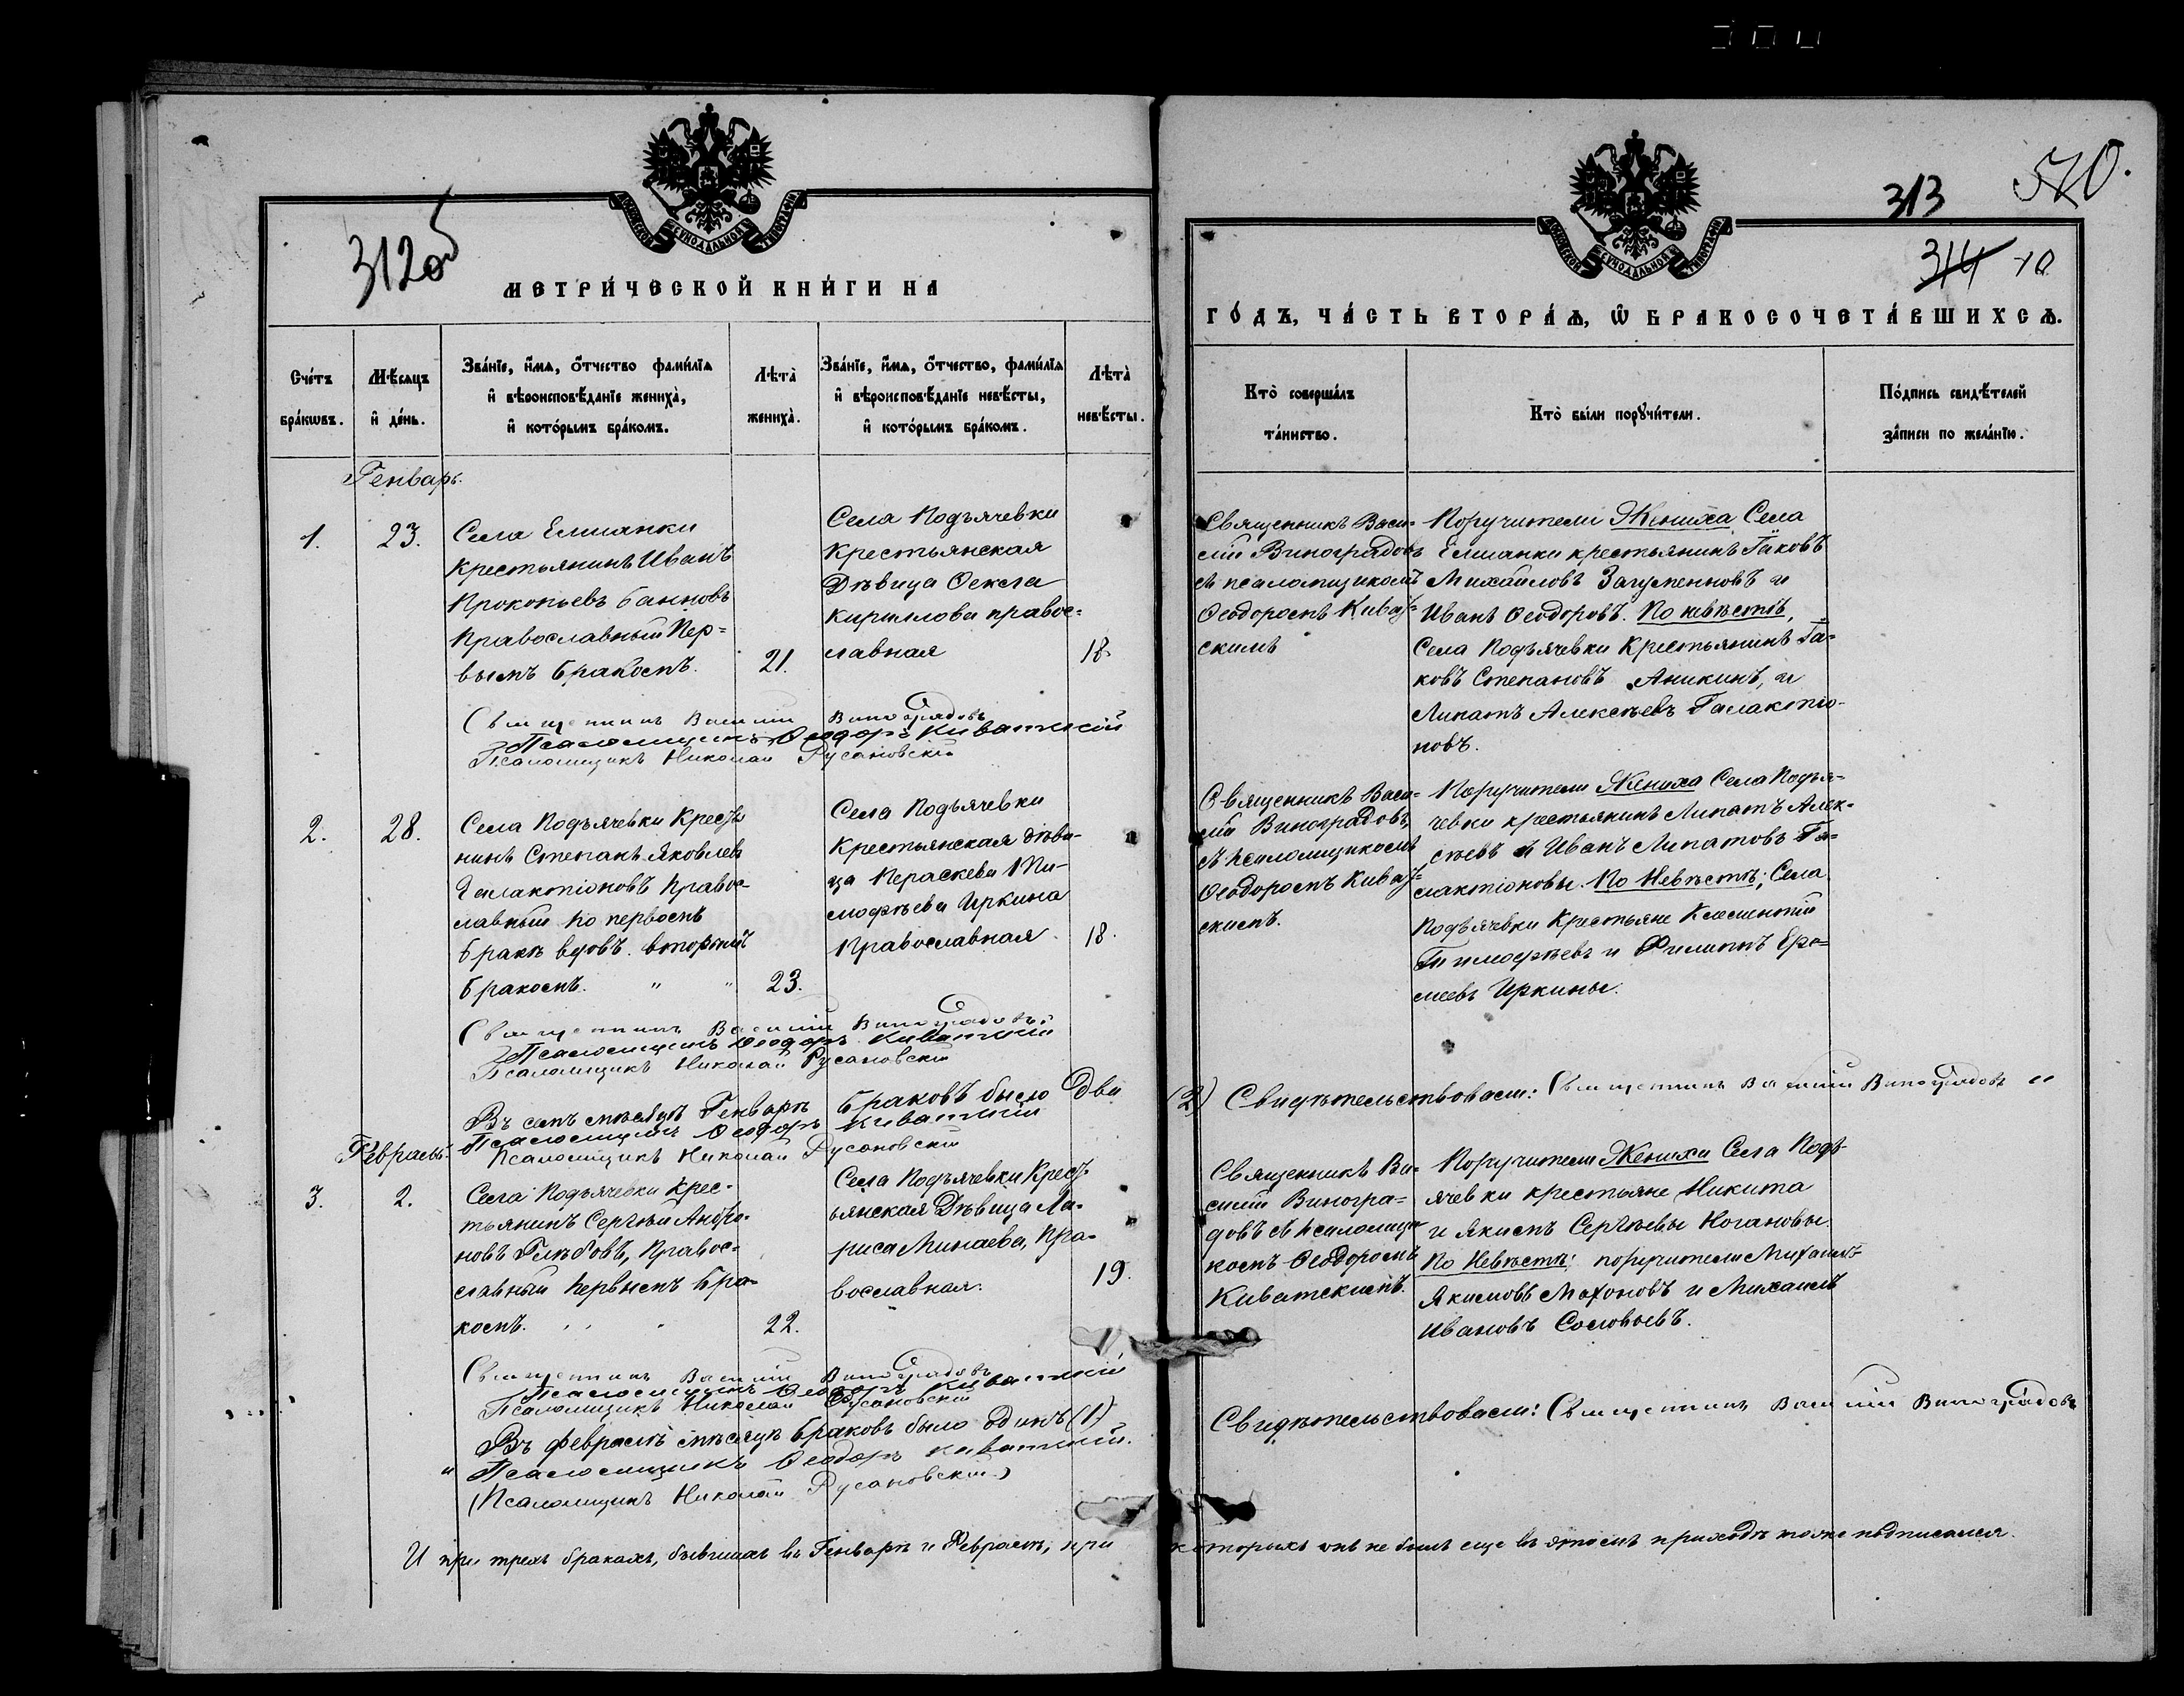 312об
МЕТРИ́ЧЕСКОЙ КНИ́ГИ НА
Сче́тъ бра́кѡвъ.
Мѣ́сяцъ и҆ де́нь.
Зва́нїе, и҆́мѧ, ѻ҆́тчество фами́лїѧ
и҆ вѣроисповѣ́данїе жениха̀,
и҆ кото́рымъ бра́комъ.
Лѣта̀ жениха̀.
Зва́нїе, и҆́мѧ, ѻ҆́тчество, фами́лїѧ
и҆ вѣроисповѣ́данїе невѣ́сты,
и҆ кото́рымъ бра́комъ.
Лѣта̀ невѣ́сты.
Генварь.
1.
23.
Села Елшанки
крестьянинъ Иванъ
Прокопьевъ Банновъ
Православный Пер-
вымъ бракомъ.
21.
Села Подъячевки
Крестьянская
Дѣвица Ѳекла
Кирилова правос-
лавная
18.
Священникъ Василій Виноградовъ
Псаломщикъ Ѳеодоръ Киватскій
Псаломщикъ Николай Русановскій
2.
28.
Села Подъячевки Крест-
нинъ Степанъ Яковлевъ
Галактіоновъ правос-
лавный по первомъ
бракѣ вдовъ. вторымъ
бракомъ. " "
23.
Села Подъячевки
Крестьянская дѣви-
ца Параскева Ти-
мофѣева Иркина
Православная
18.
Священникъ Василій Виноградовъ
Псаломщикъ Ѳеодоръ Киватскій
Псаломщикъ Николай Русановскій
Въ семъ мѣсяцѣ Генварѣ браковъ было два
Псаломщикъ Ѳеодоръ Киватскій
Псаломщикъ Николай Русановскій
Февраль.
3.
2.
Села Подъячевки крес-
тьянинъ Сергѣй Андро-
новъ Глѣбовъ, Правос-
лавный первымъ бра-
комъ.
22.
Села Подъячевки Крест-
ьянская Дѣвица Ла-
риса Минаева, Пра-
вославная.
19.
Священникъ Василій Виноградовъ
Псаломщикъ Ѳеодоръ Киватскій
Псаломщикъ Николай Русановскій
Въ февралѣ мѣсяцѣ браковъ было одинъ (1)
" Псаломщикъ Ѳеодоръ Киватскій.
(Псаломщикъ Николай Русановскій)
И при трехъ бракахъ, бывшихъ въ Генварѣ и Февралѣ, при
313
520.
314
10
ГО́ДЪ, ЧА́СТЬ ВТОРА́Ѧ, Ѡ҆ БРАКОСОЧЕТА́ВШИХСѦ.
Кто̀ соверша́лъ
та́инство.
Кто̀ бы́ли порꙋчи́тели.
По́дпись свидѣ́телей
за́писи по жела́нїю.
Священникъ Васи-
лій Виноградовъ
съ псаломщикомъ
Ѳеодоромъ Киват-
скимъ
Поручители Жениха Села
Елшанки крестьянинъ Іаковъ
Михайловъ Загуменновъ и
Иванъ Ѳеодоровъ. По невѣстѣ,
Села Подъячевки Крестьянинъ Іа-
ковъ Степановъ Аникинъ, и
Липатъ Алексѣевъ Галактіо-
новъ.
Священникъ Васи-
лій Виноградовъ,
съ псаломщикомъ
Ѳеодоромъ Киват-
скимъ.
Поручители Жениха Села Подъя-
чевки крестьянинъ Липатъ Алек-
сѣевъ и Иванъ Липатовъ Га-
лактіоновы. По Невѣстѣ; Села
Подъячевки Крестьяне Климентій
Тимофѣевъ и Филиппъ Ере-
меевъ Иркины.
(2) Свидѣтельствовали: Священникъ Василій Виноградовъ и
Священникъ Ва-
силій Виногра-
довъ съ псаломщи-
комъ Ѳеодоромъ
Киватскимъ.
Поручители Жениха Села Подъ-
ячевки крестьяне Никита
и Якимъ Сергѣевы Когановы.
По Невѣстѣ; поручители Михаилъ
Якимовъ Мохоновъ и Михаилъ
Ивановъ Соловьевъ.
Свидѣтельствовали: Священникъ Василій Виноградовъ
которыхъ онъ не былъ еще въ этомъ приходѣ тоже подписался.